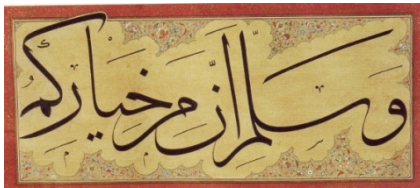 وسلم إن من خياركم